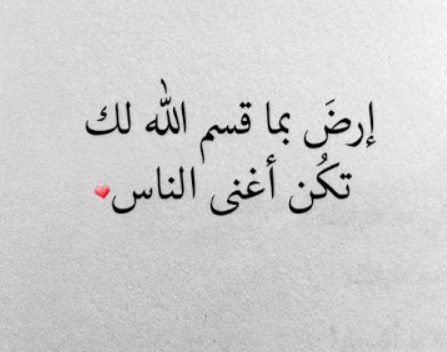 إرضَ بما قسم الله لك
تكُن أغنى الناس❤